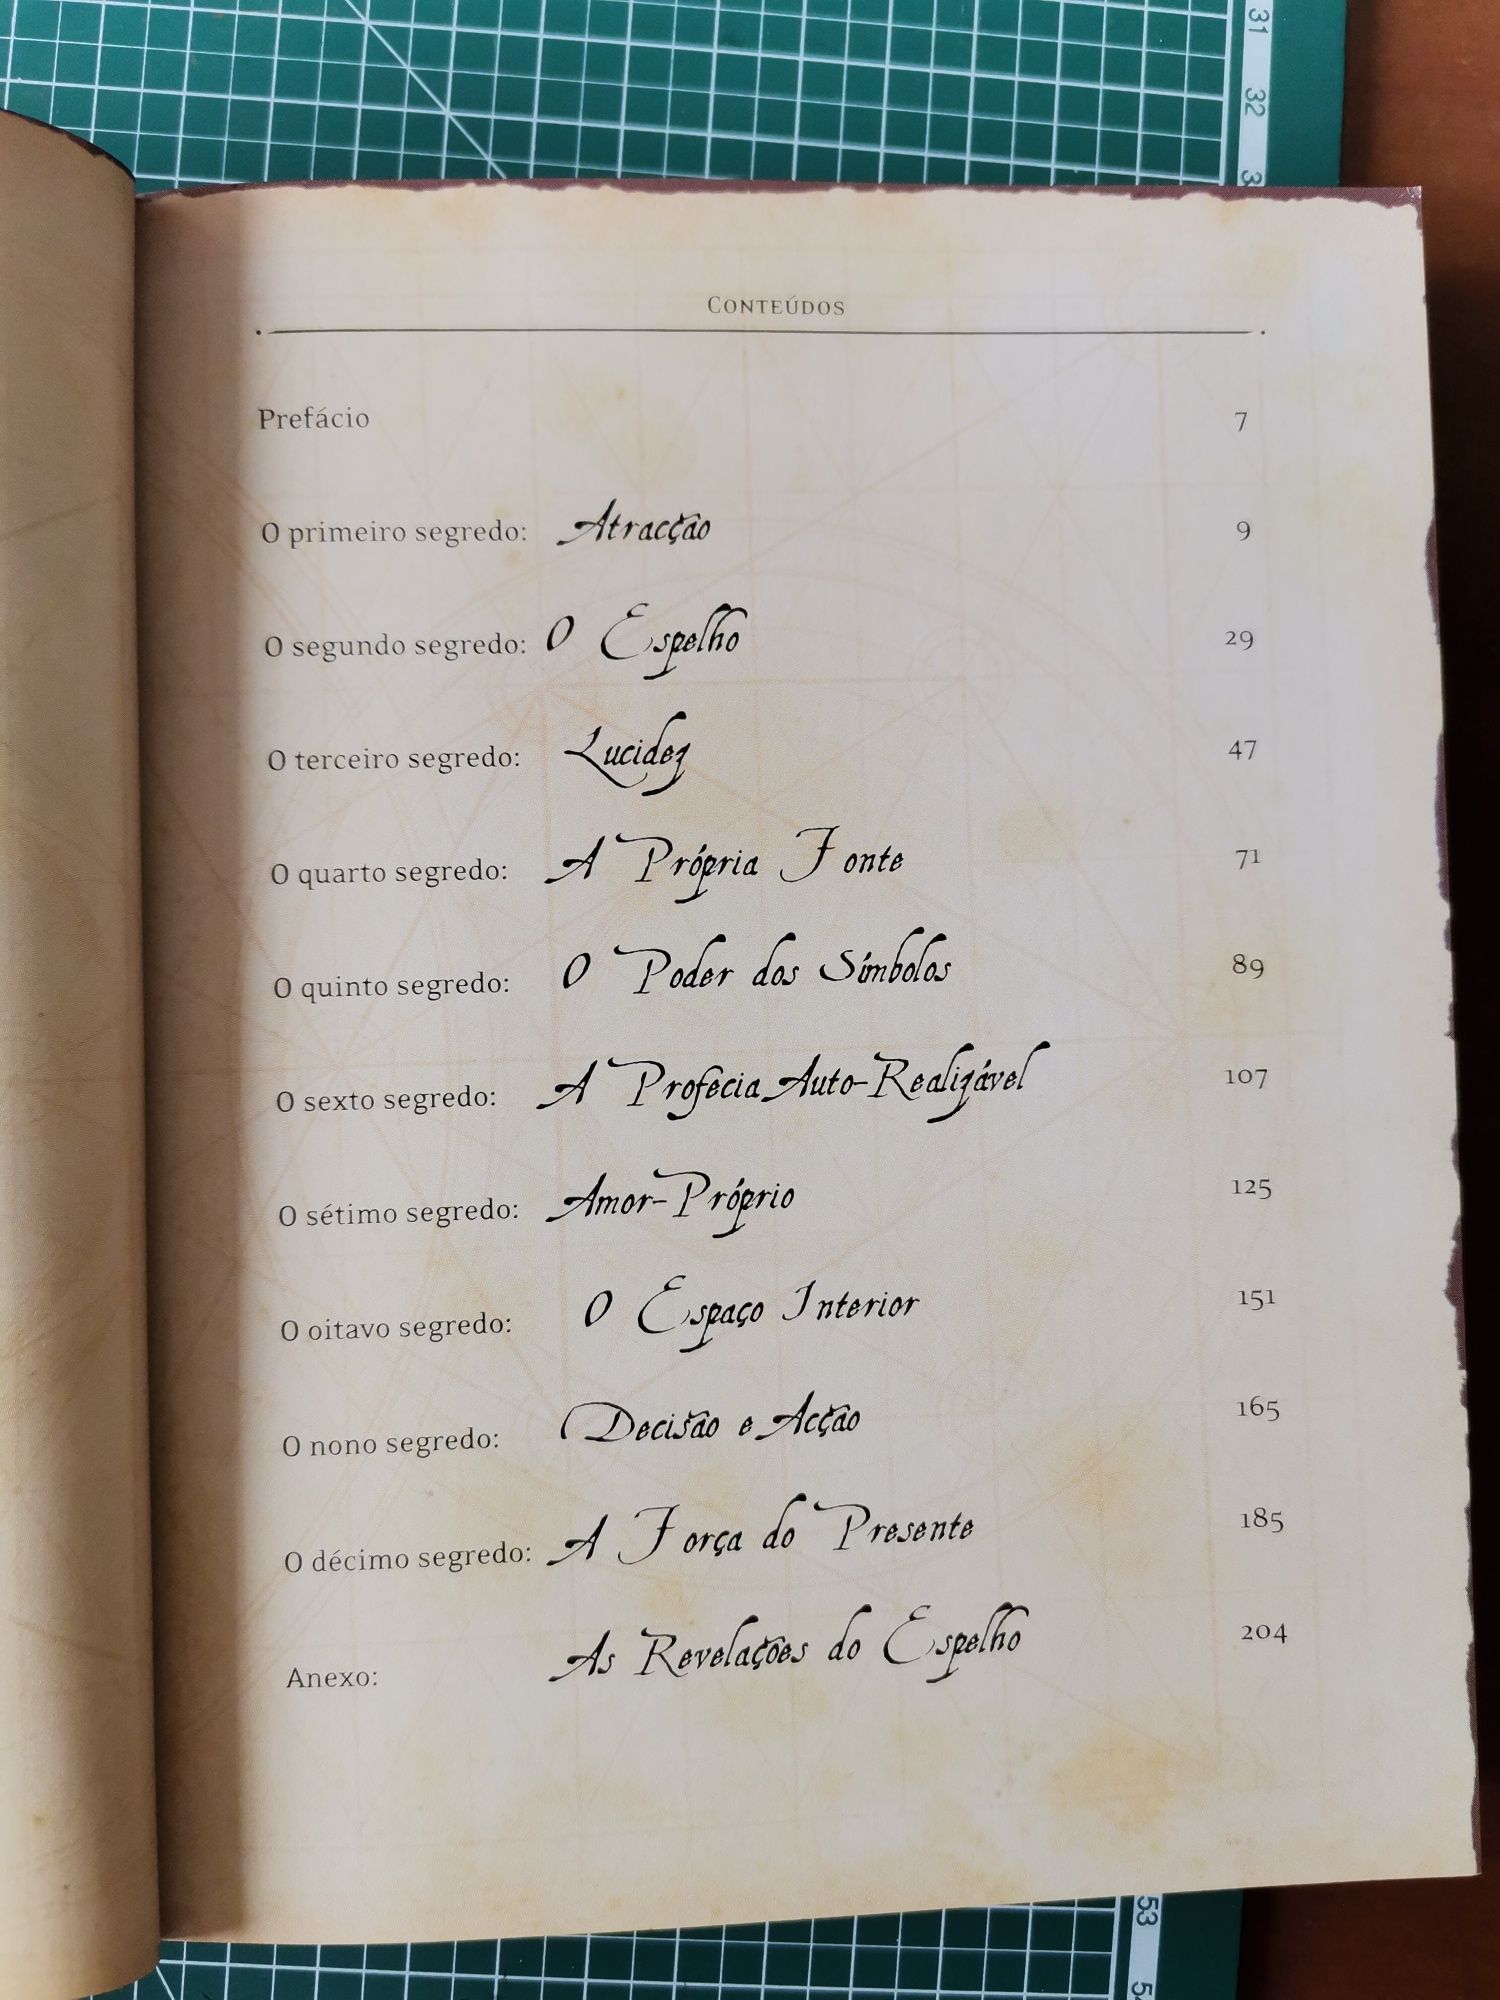 31
32
Conteúdos
Prefácio 7
O primeiro segredo: Atracção 9
O segundo segredo: O Espelho 29
O terceiro segredo: Lucidez 47
O quarto segredo: A Própria Fonte 71
O quinto segredo: O Poder dos Símbolos 89
O sexto segredo: A Profecia Auto-Realizável 107
O sétimo segredo: Amor-Próprio 125
O oitavo segredo: O Espaço Interior 151
O nono segredo: Decisão e Acção 165
O décimo segredo: A Força do Presente 185
Anexo: As Revelações do Espelho 204
53